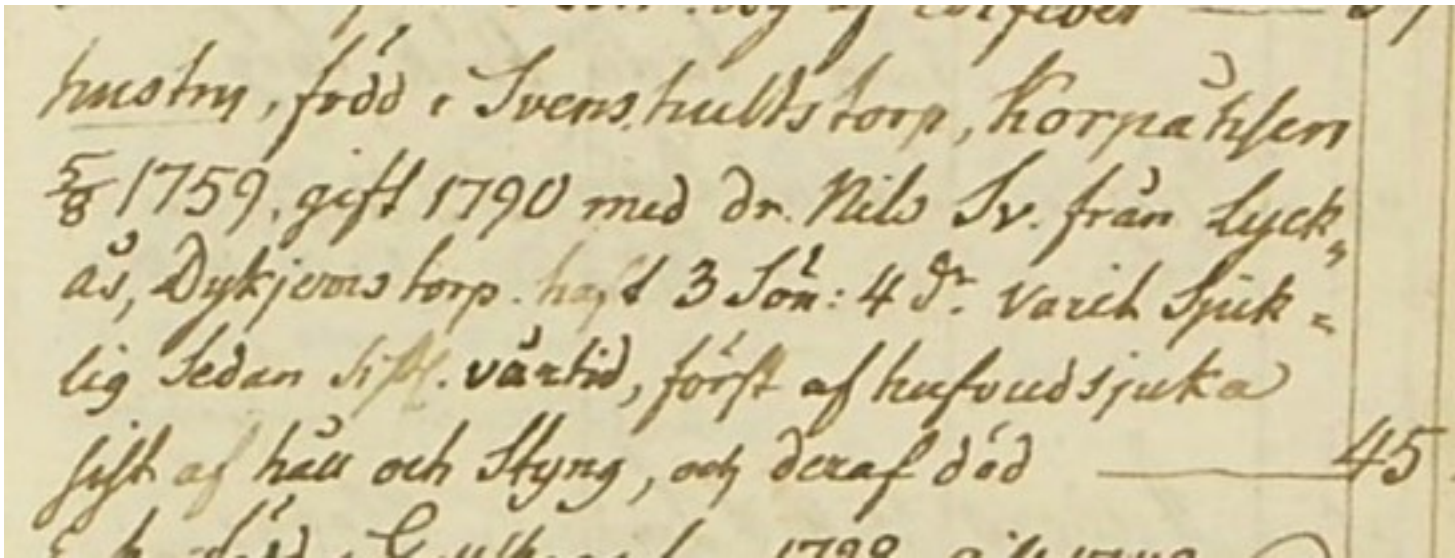 hustru, född i Svenshults torp, Korpåhsen
5/8 1759, gift 1790 med dr. Nils Sv. från Lyck=
ås, Dykjerrs torp. haft 3 Sön: 4 dr. varit Sjuk=
lig sedan sistl. vårtid, först af hufvudsjuka
sist af håll och Styng, och deraf död 45